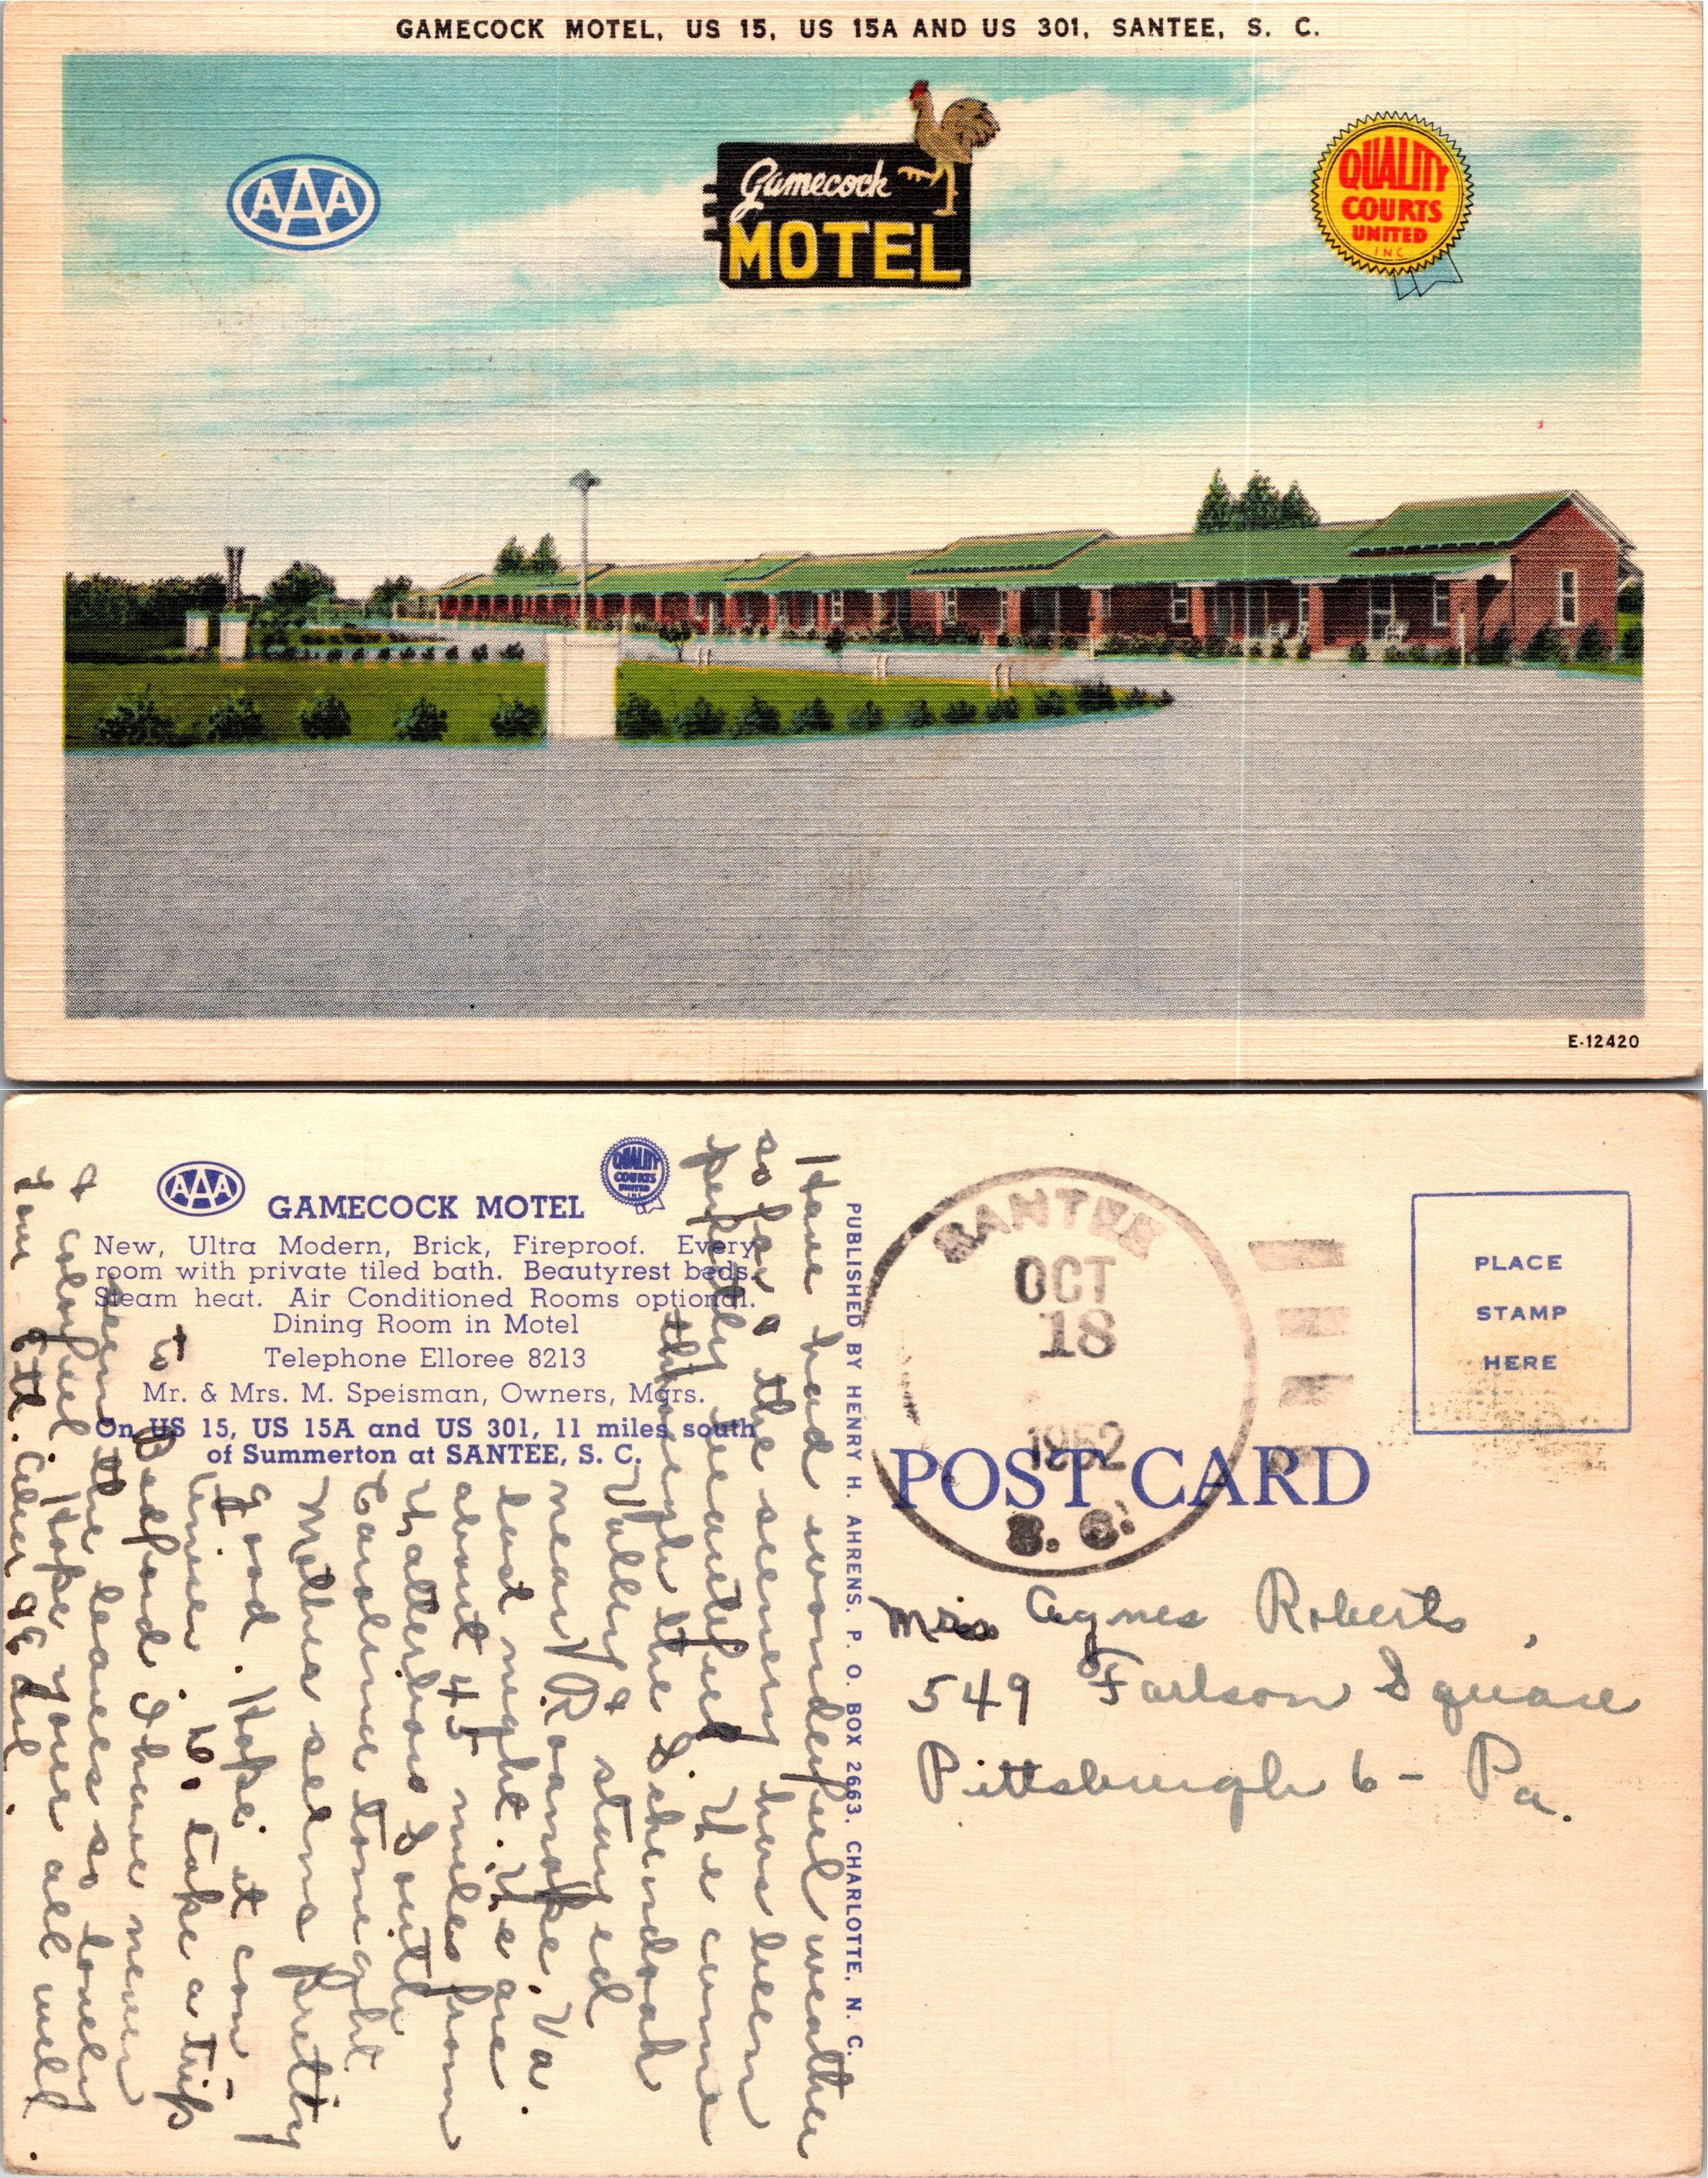 GAMECOCK MOTEL, US 15, US 15A AND US 301, SANTEE, S. C.
AAA
Gamecock
MOTEL
QUALITY
COURTS
UNITED
INC
E-12420
AAA
QUALITY
COURTS
UNITED
INC
GAMECOCK MOTEL
New, Ultra Modern, Brick, Fireproof. Every
room with private tiled bath. Beautyrest beds.
Steam heat. Air Conditioned Rooms optional.
Dining Room in Motel
Telephone Elloree 8213
Mr. & Mrs. M. Speisman, Owners, Mgrs.
On US 15, US 15A and US 301, 11 miles south
of Summerton at SANTEE, S. C.
Have had wonderful weather
so far & the scenery has been
perfectly beautiful. We came
through the Shendoah
Valley & stayed
near Roanoke, Va.
last night. We are
about 45 miles from
Walterboro South
Caroline tonight
Mother seems pretty
good. Hope it con-
tinues. to take a trip
to Bedford I have never
seen the leaves so lovely
& colorful. Hope your all well
PUBLISHED BY HENRY H. AHRENS, P. O. BOX 2663, CHARLOTTE, N. C.
SANTEE
OCT
18
1952
S. C.
PLACE
STAMP
HERE
POST CARD
Mrs Agnes Roberts,
549 Farlson Square
Pittsburgh 6 - Pa.